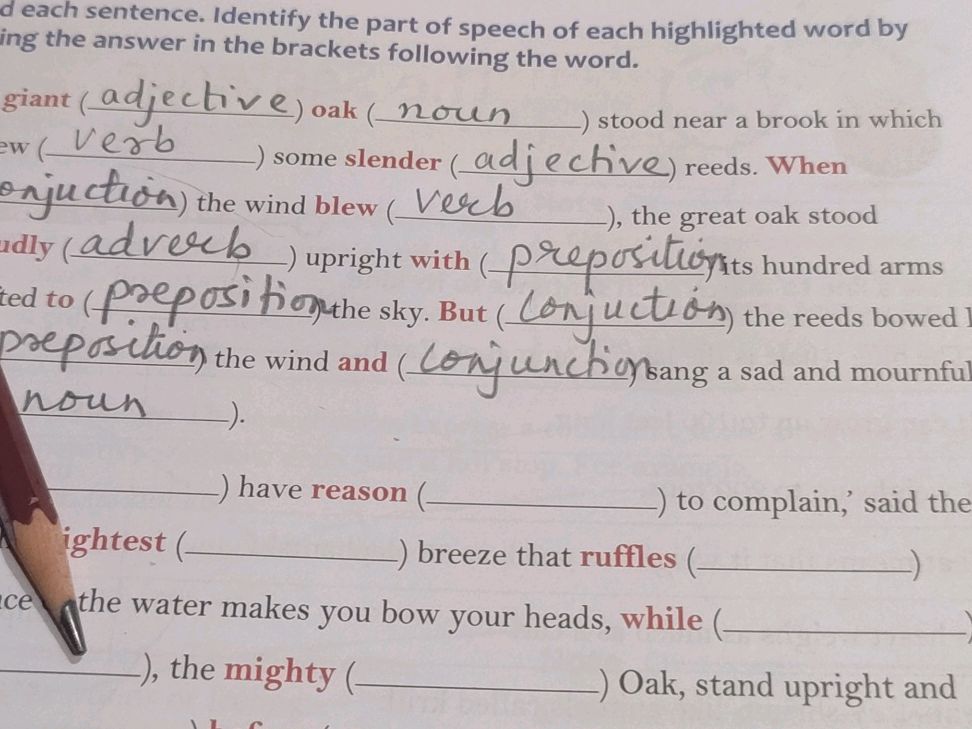 d each sentence. Identify the part of speech of each highlighted word by
ing the answer in the brackets following the word.
giant ( adjective ) oak ( noun ) stood near a brook in which
ew ( verb ) some slender ( adjective ) reeds. When
onjuction ) the wind blew ( verb ), the great oak stood
udly ( adverb ) upright with ( preposition its hundred arms
ted to ( preposition ) the sky. But ( Conjuction ) the reeds bowed l
preposition ) the wind and ( conjunction ) sang a sad and mournful
noun ).
) have reason ( ) to complain,' said the
ightest ( ) breeze that ruffles ( )
ace the water makes you bow your heads, while ( )
), the mighty ( ) Oak, stand upright and